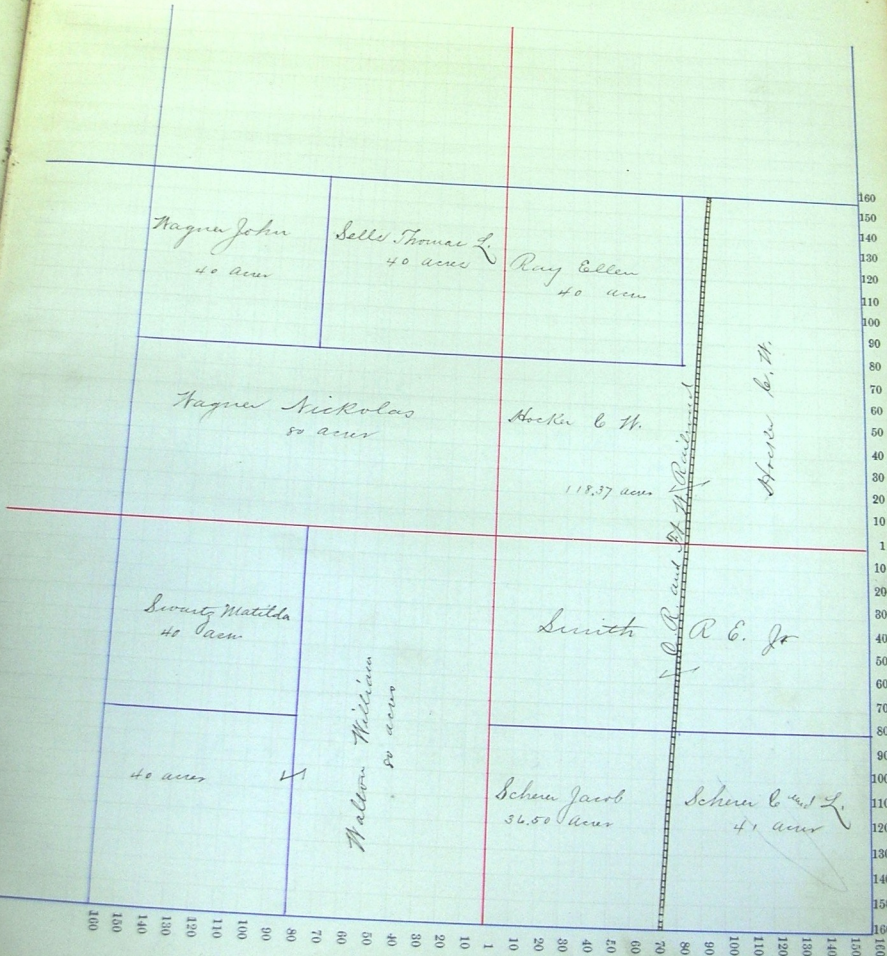 Wagner John
40 acres
Sells Thomas L.
40 acres
Ray Ellen
40 acres
Wagner Nickolas
80 acres
Hocker C W.
118.37 acres
Hocker C. W.
R. and Ft W Railroad
Swartz Matilda
40 acres
40 acres
Walton William
80 acres
Smith R E. Jr
Scherer Jacob
36.50 acres
Scherer C and L.
41 acres
160
150
140
130
120
110
100
90
80
70
60
50
40
30
20
10
1
10
20
30
40
50
60
70
80
90
100
110
120
130
140
150
160
160 150 140 130 120 110 100 90 80 70 60 50 40 30 20 10 1 10 20 30 40 50 60 70 80 90 100 110 120 130 140 150 160